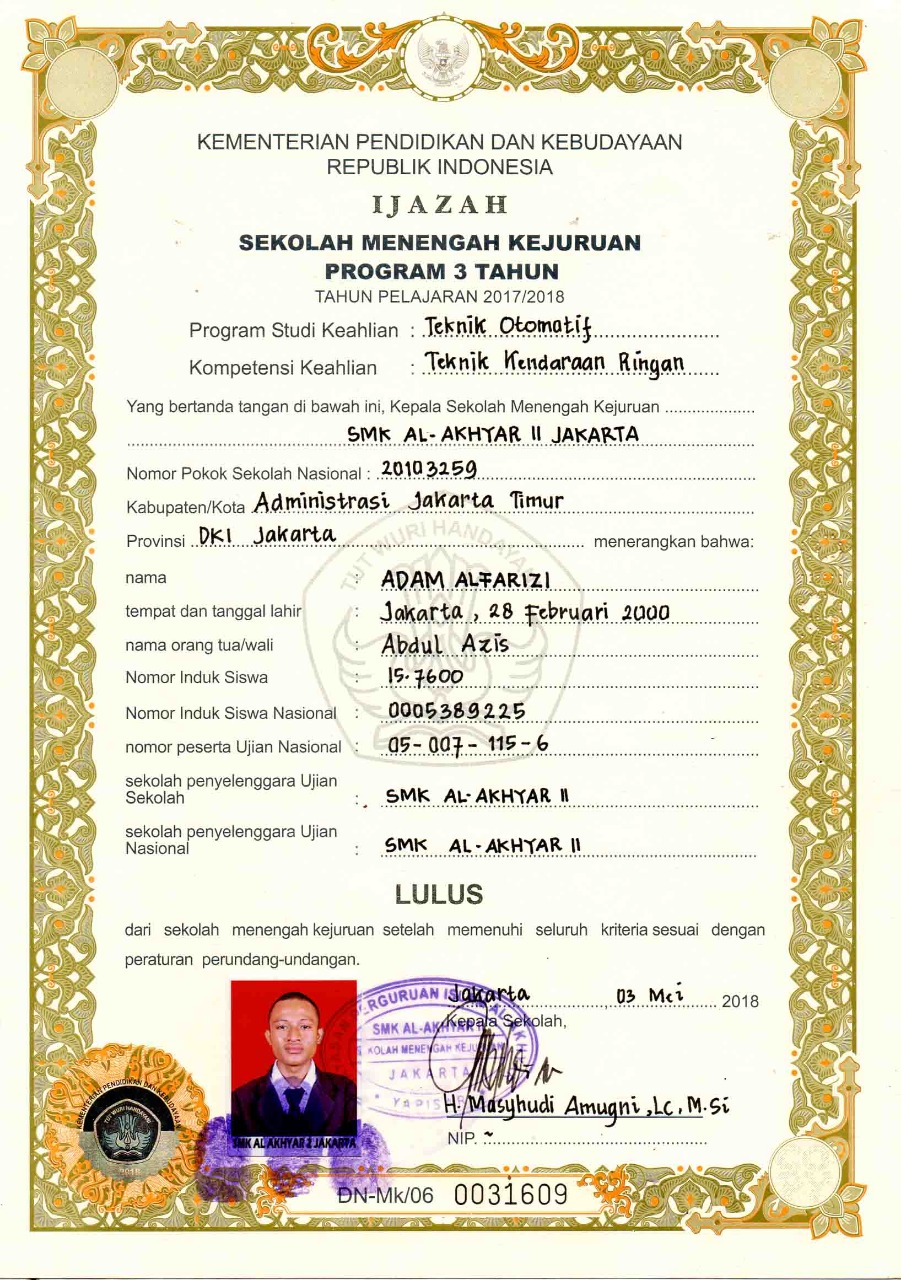 KEMENTERIAN PENDIDIKAN DAN KEBUDAYAAN
REPUBLIK INDONESIA
IJAZAH
SEKOLAH MENENGAH KEJURUAN
PROGRAM 3 TAHUN
TAHUN PELAJARAN 2017/2018
Program Studi Keahlian : Teknik Otomatif
Kompetensi Keahlian : Teknik Kendaraan Ringan
Yang bertanda tangan di bawah ini, Kepala Sekolah Menengah Kejuruan
SMK AL-AKHYAR II JAKARTA
Nomor Pokok Sekolah Nasional : 20103259
Kabupaten/Kota Administrasi Jakarta Timur
Provinsi DKI Jakarta menerangkan bahwa:
TUT WURI HANDAYANI
nama : ADAM ALFARIZI
tempat dan tanggal lahir : Jakarta, 28 Februari 2000
nama orang tua/wali : Abdul Azis
Nomor Induk Siswa : 15.7600
Nomor Induk Siswa Nasional : 0005389225
nomor peserta Ujian Nasional : 05-007-115-6
sekolah penyelenggara Ujian
Sekolah : SMK AL-AKHYAR II
sekolah penyelenggara Ujian
Nasional : SMK AL-AKHYAR II
LULUS
dari sekolah menengah kejuruan setelah memenuhi seluruh kriteria sesuai dengan
peraturan perundang-undangan.
Jakarta 03 Mei 2018
Kepala Sekolah,
PERGURUAN
SMK AL-AKHYAR
SEKOLAH MENENGAH KEJURUAN
JAKARTA
H. Masyhudi Amugni, Lc, M.Si
NIP. ~
SMK AL AKHYAR 2 JAKARTA
KEMENTERIAN PENDIDIKAN DAN KEBUDAYAAN
TUT WURI HANDAYANI
2018
DN-Mk/06 0031609